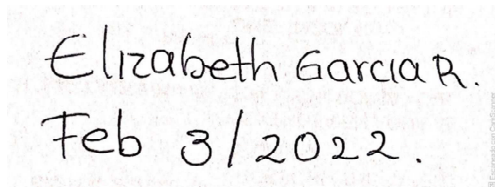 Elizabeth Garcia R.
Feb 3/2022.